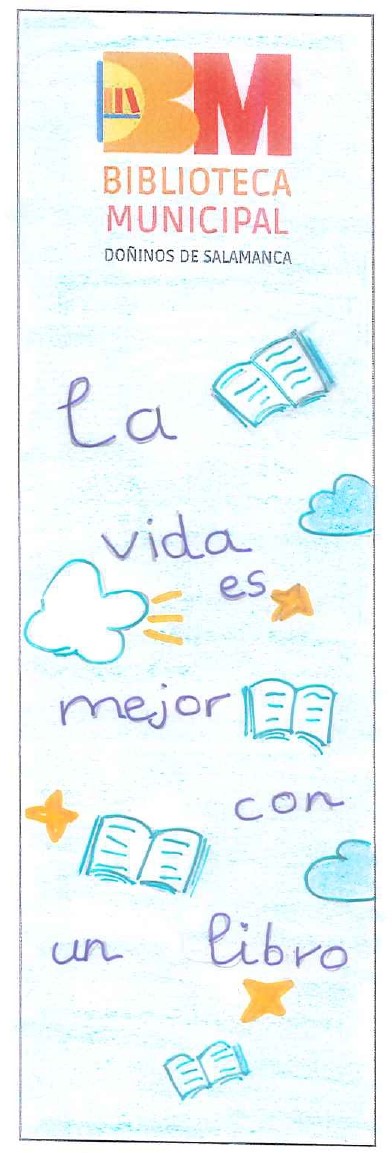 BM
BIBLIOTECA
MUNICIPAL
DOÑINOS DE SALAMANCA
La
vida
es
mejor
con
un libro